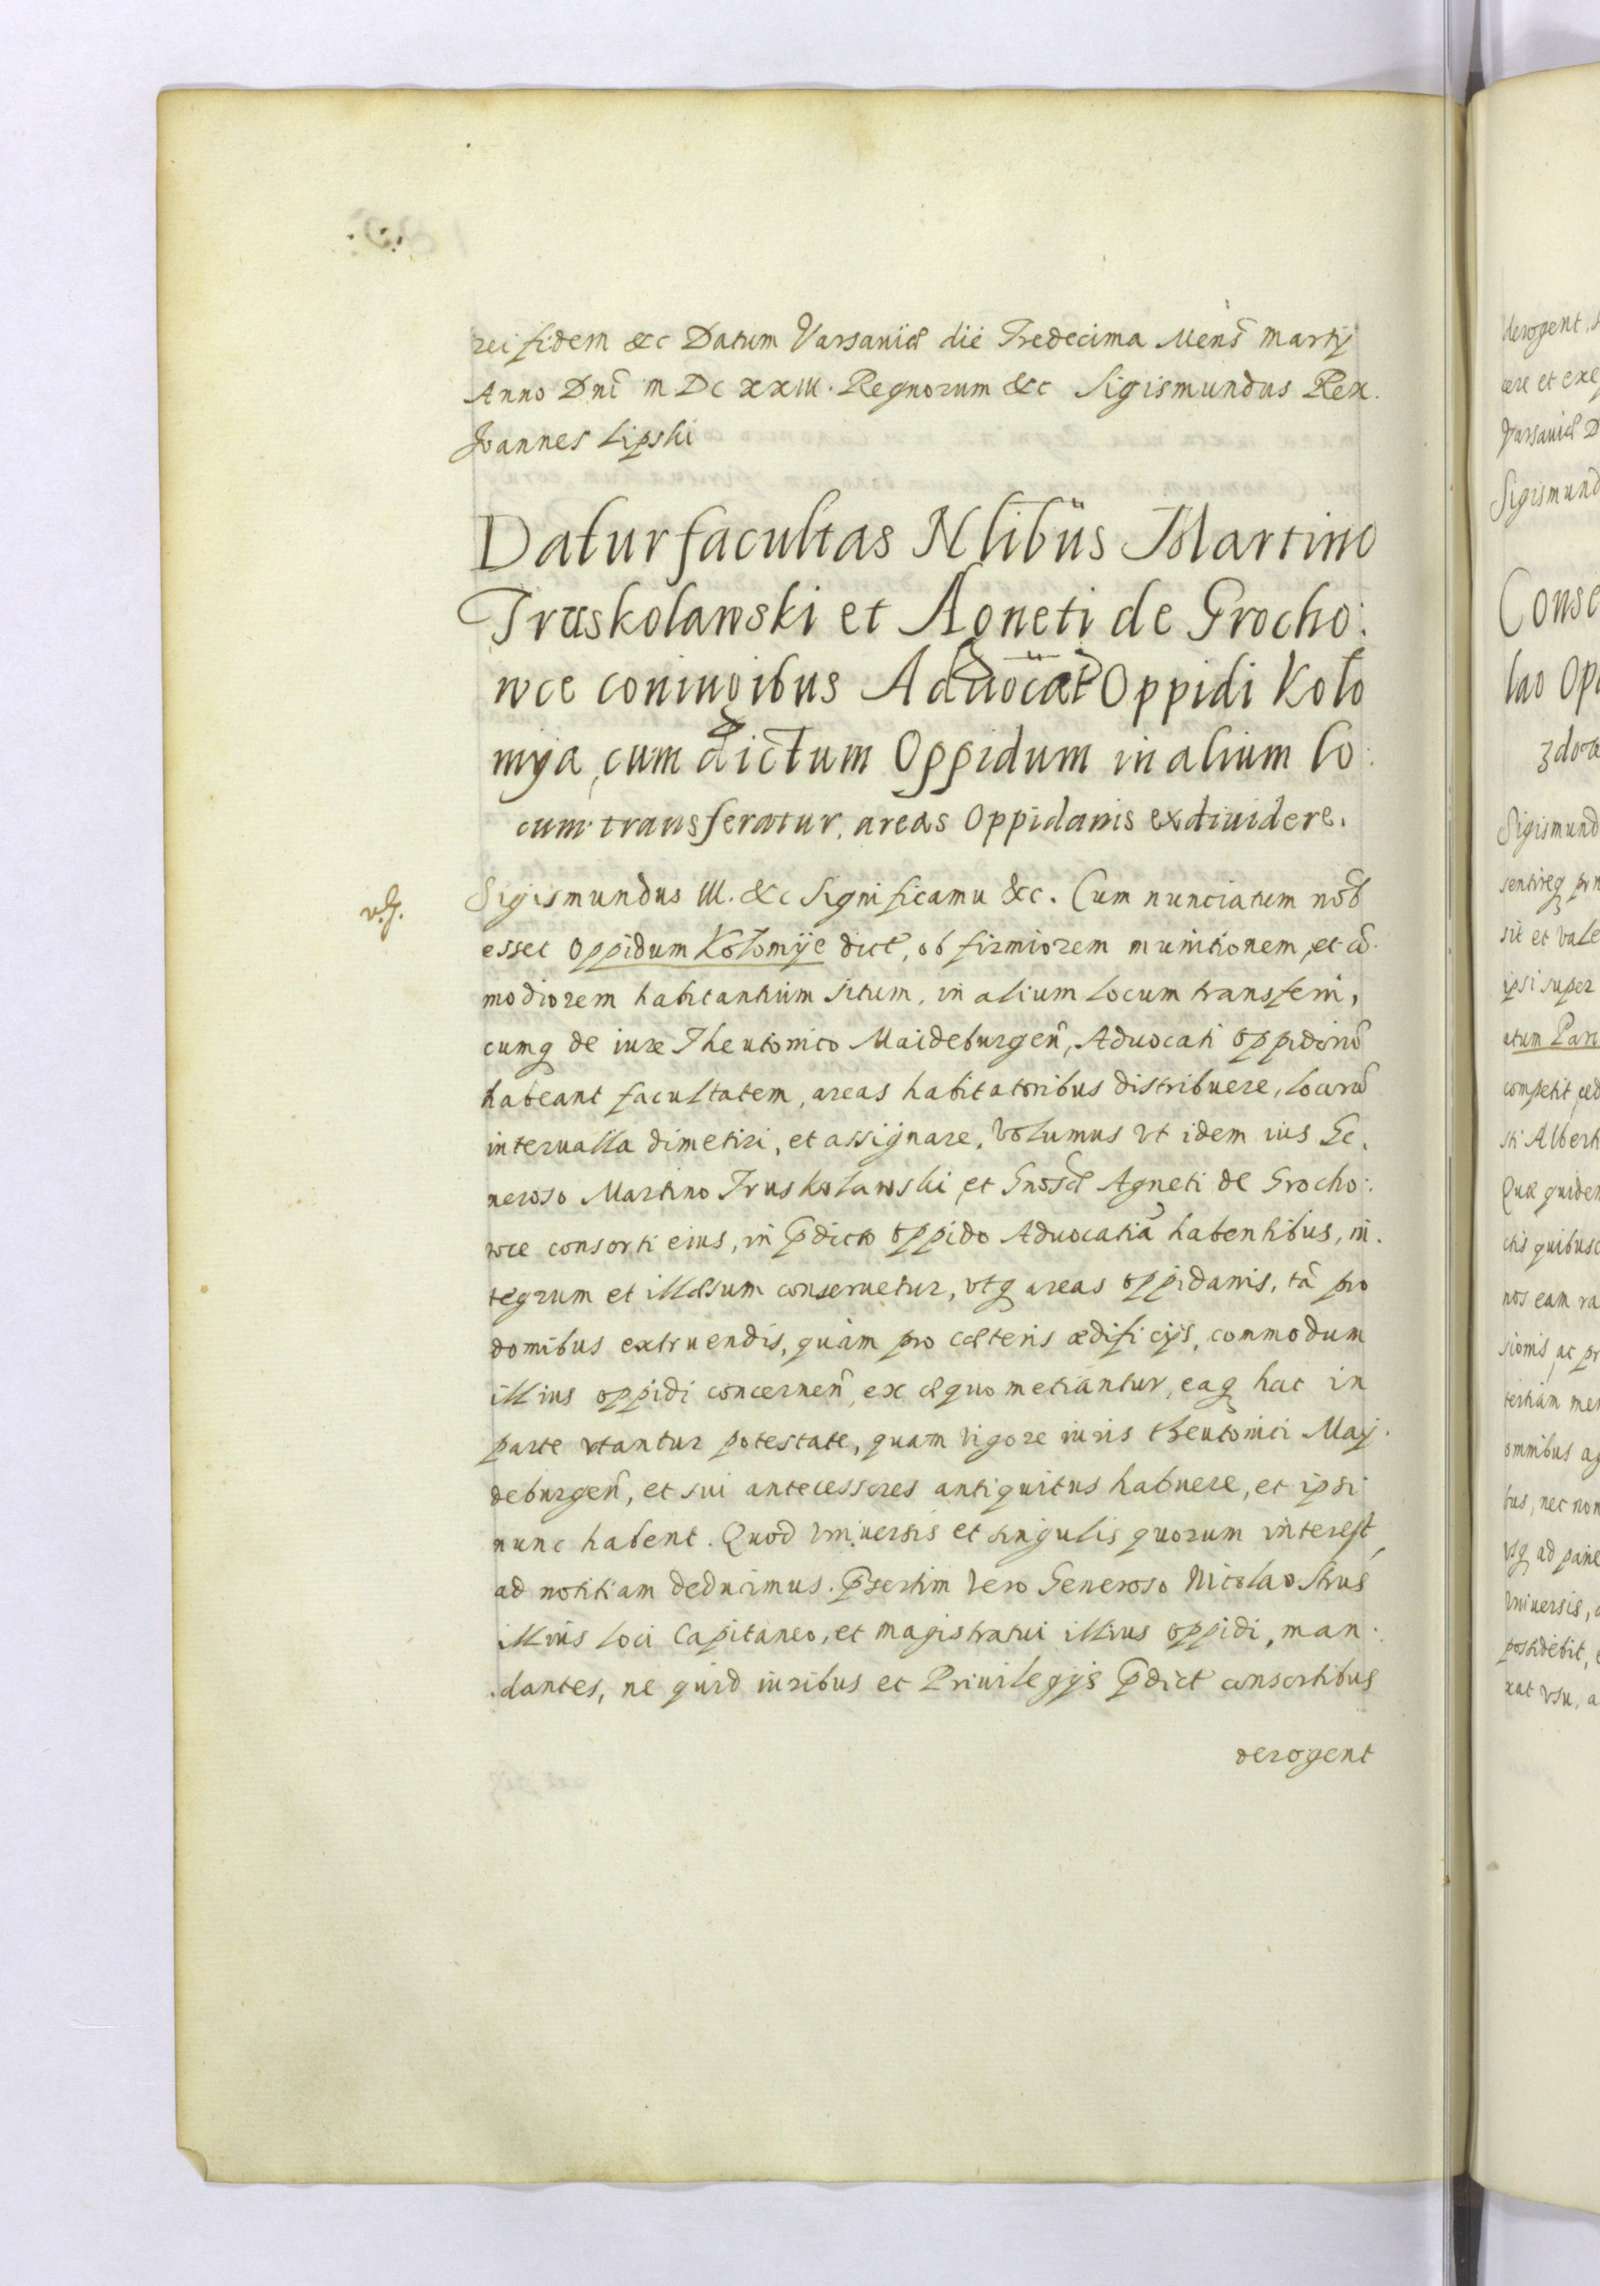 rei fidem &c Datum Varsaviæ die Tredecima Mens̄ Martij
Anno Dnī M Dc xxIII. Regnorum &c Sigismundus Rex.
Joannes Lipski
Datur facultas Nlibus Martino
Truskolawski et Agneti de Grocho:
wce coniugibus Aduocat Oppidi Kolo
myia, cum dictum Oppidum in alium lo:
cum transferatur, areas Oppidanis exdiuidere.
Sigismundus III. &c Significamu &c. Cum nunciatum nōb
esset Oppidum Kolomÿe dict, ob firmiorem munitionem, et cō.
modiorem habitantium situm, in alium locum transferri,
cumq de iure Theutonico Maideburgeñ, Aduocati oppidorū
habeant facultatem, areas habitatoribus distribuere, locorū
interualla dimetiri, et assignare, Volumus vt idem ius Ge.
neroso Martino Truskolawski, et Gnosæ Agneti de Grocho:
wce consorti eius, in p̄dicto oppido Aduocatiā habentibus, in.
tegrum et illæsum conseruetur, vtq areas oppidanis, tā pro
domibus extruendis, quàm pro cæteris ædificijs, commodum
illius oppidi concerneñ, ex æquo metiantur, eaq hac in
parte vtantur potestate, quam vigore iuris theutonici Maj.
deburgeñ, et sui antecessores antiquitus habuere, et ipsi
nunc habent. Quod vniuersis et singulis quorum interest,
ad notitiam deducimus. P̄sertim vero Generoso Nicolao Strus
illius loci Capitaneo, et magistratui illius oppidi, man:
dantes, ne quid iuribus et Priuilegijs p̄dict consortibus
derogent